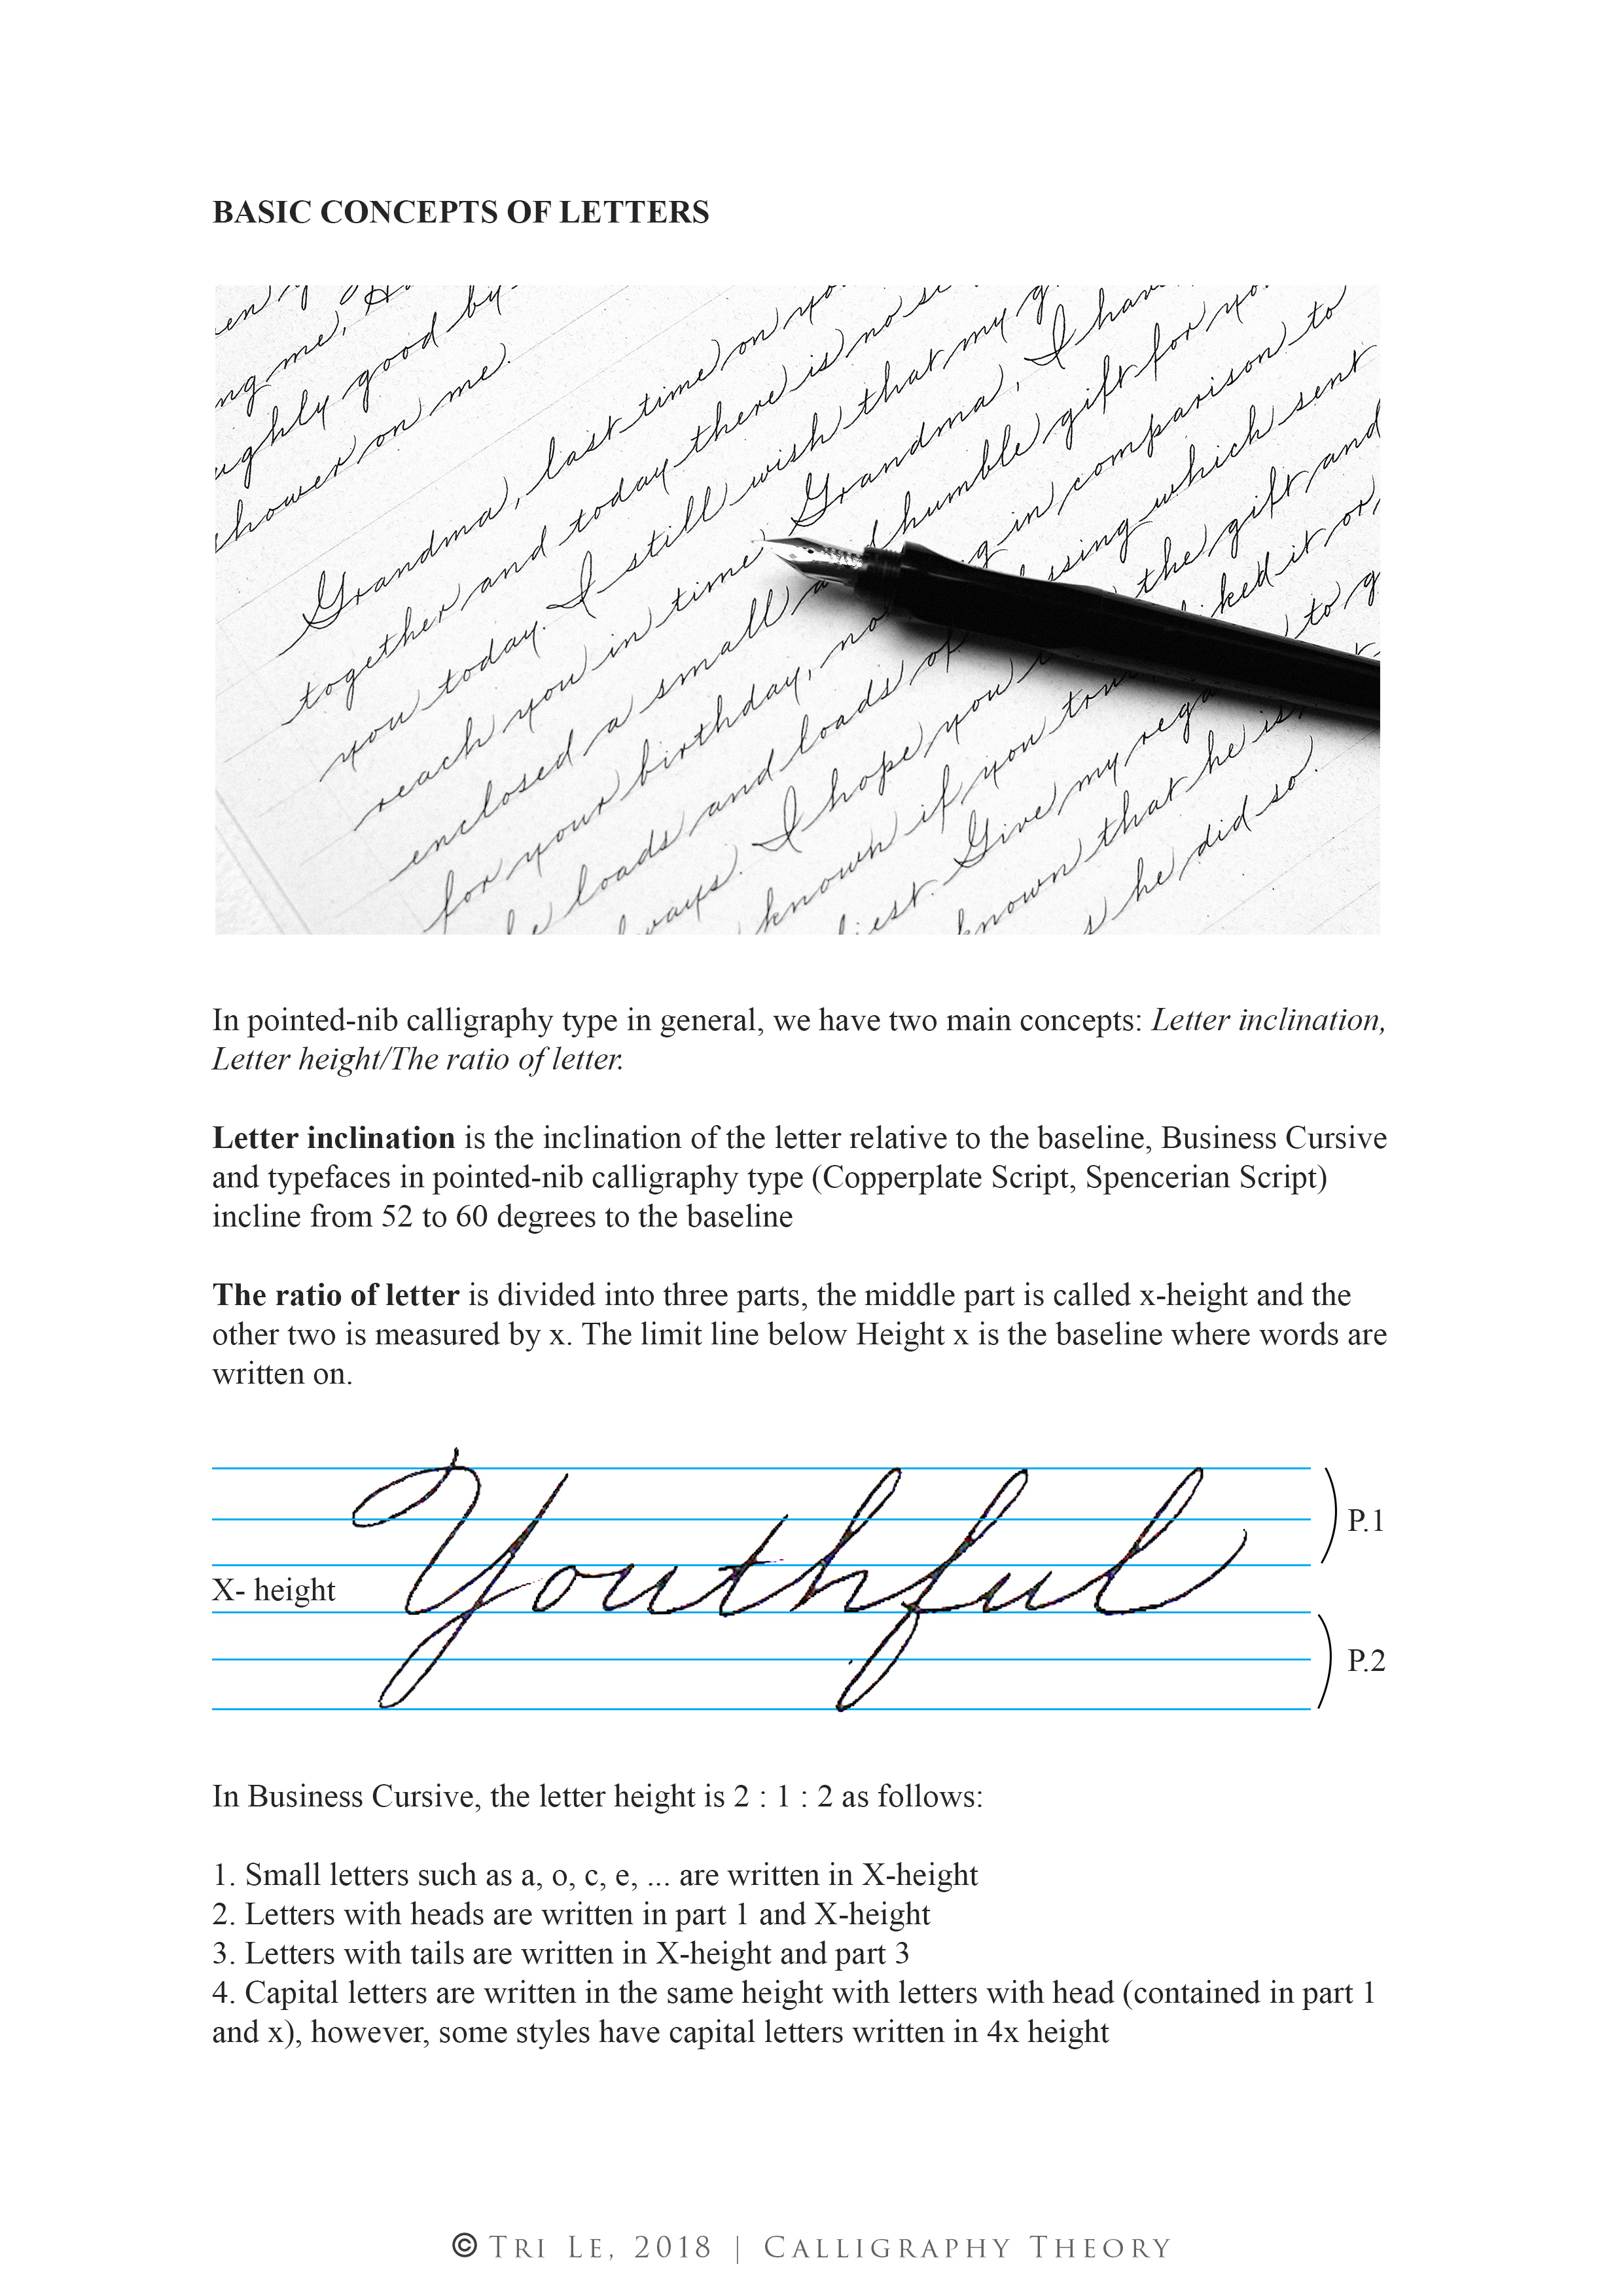 BASIC CONCEPTS OF LETTERS
en
ng me,
ughly good by
shower on me.
Grandma, last time on yo
together and today there is no
you today. I still wish that my g
reach you in time. Grandma, I hav
enclosed a small humble gift for yo
for your birthday, no in comparison to
loads and loads of ssing which sent
ways. I hope you the gift and
known if you liked it or
iest. Give my reg to g
known that he is
he did so.
In pointed-nib calligraphy type in general, we have two main concepts: Letter inclination,
Letter height/The ratio of letter.
Letter inclination is the inclination of the letter relative to the baseline, Business Cursive
and typefaces in pointed-nib calligraphy type (Copperplate Script, Spencerian Script)
incline from 52 to 60 degrees to the baseline
The ratio of letter is divided into three parts, the middle part is called x-height and the
other two is measured by x. The limit line below Height x is the baseline where words are
written on.
Youthful
P.1
X- height
P.2
In Business Cursive, the letter height is 2 : 1 : 2 as follows:
1. Small letters such as a, o, c, e, ... are written in X-height
2. Letters with heads are written in part 1 and X-height
3. Letters with tails are written in X-height and part 3
4. Capital letters are written in the same height with letters with head (contained in part 1
and x), however, some styles have capital letters written in 4x height
© TRI LE, 2018 | CALLIGRAPHY THEORY